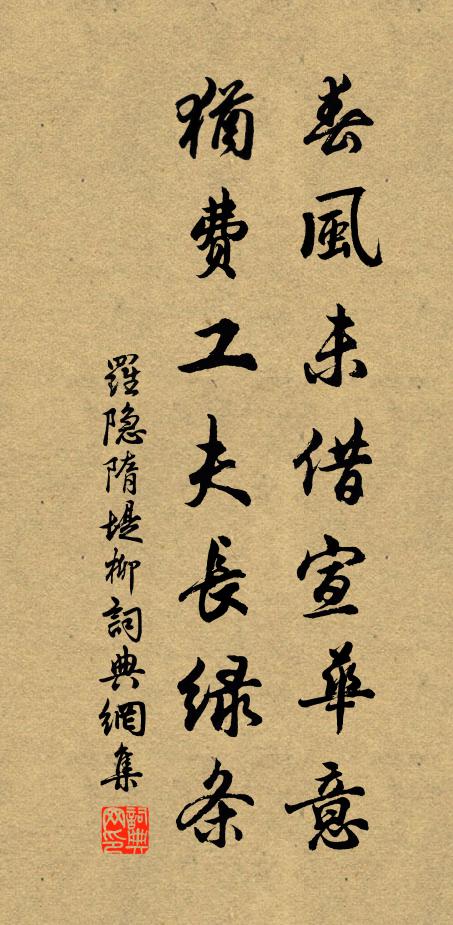 春風未借宣華意
猶費工夫長緑条
羅隐隋堤柳詞典網集
詞典网印